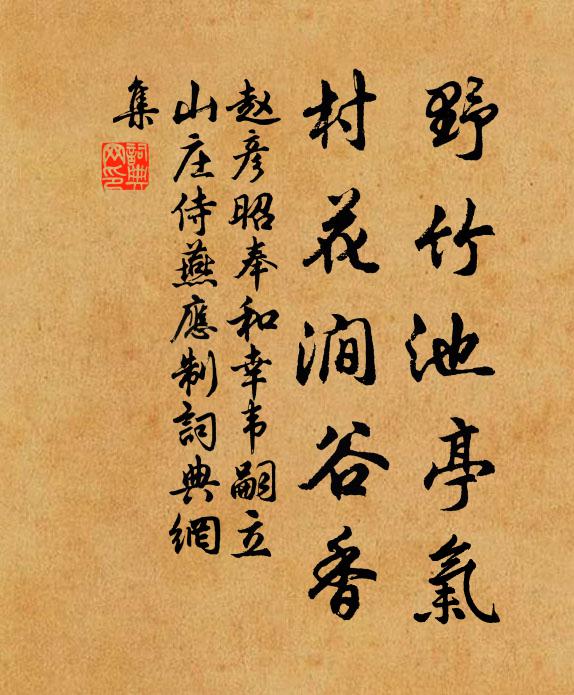 野竹池亭氣
村花澗谷香
赵彦昭奉和幸韦嗣立
山庄侍燕應制詞典網
集
詞典網印